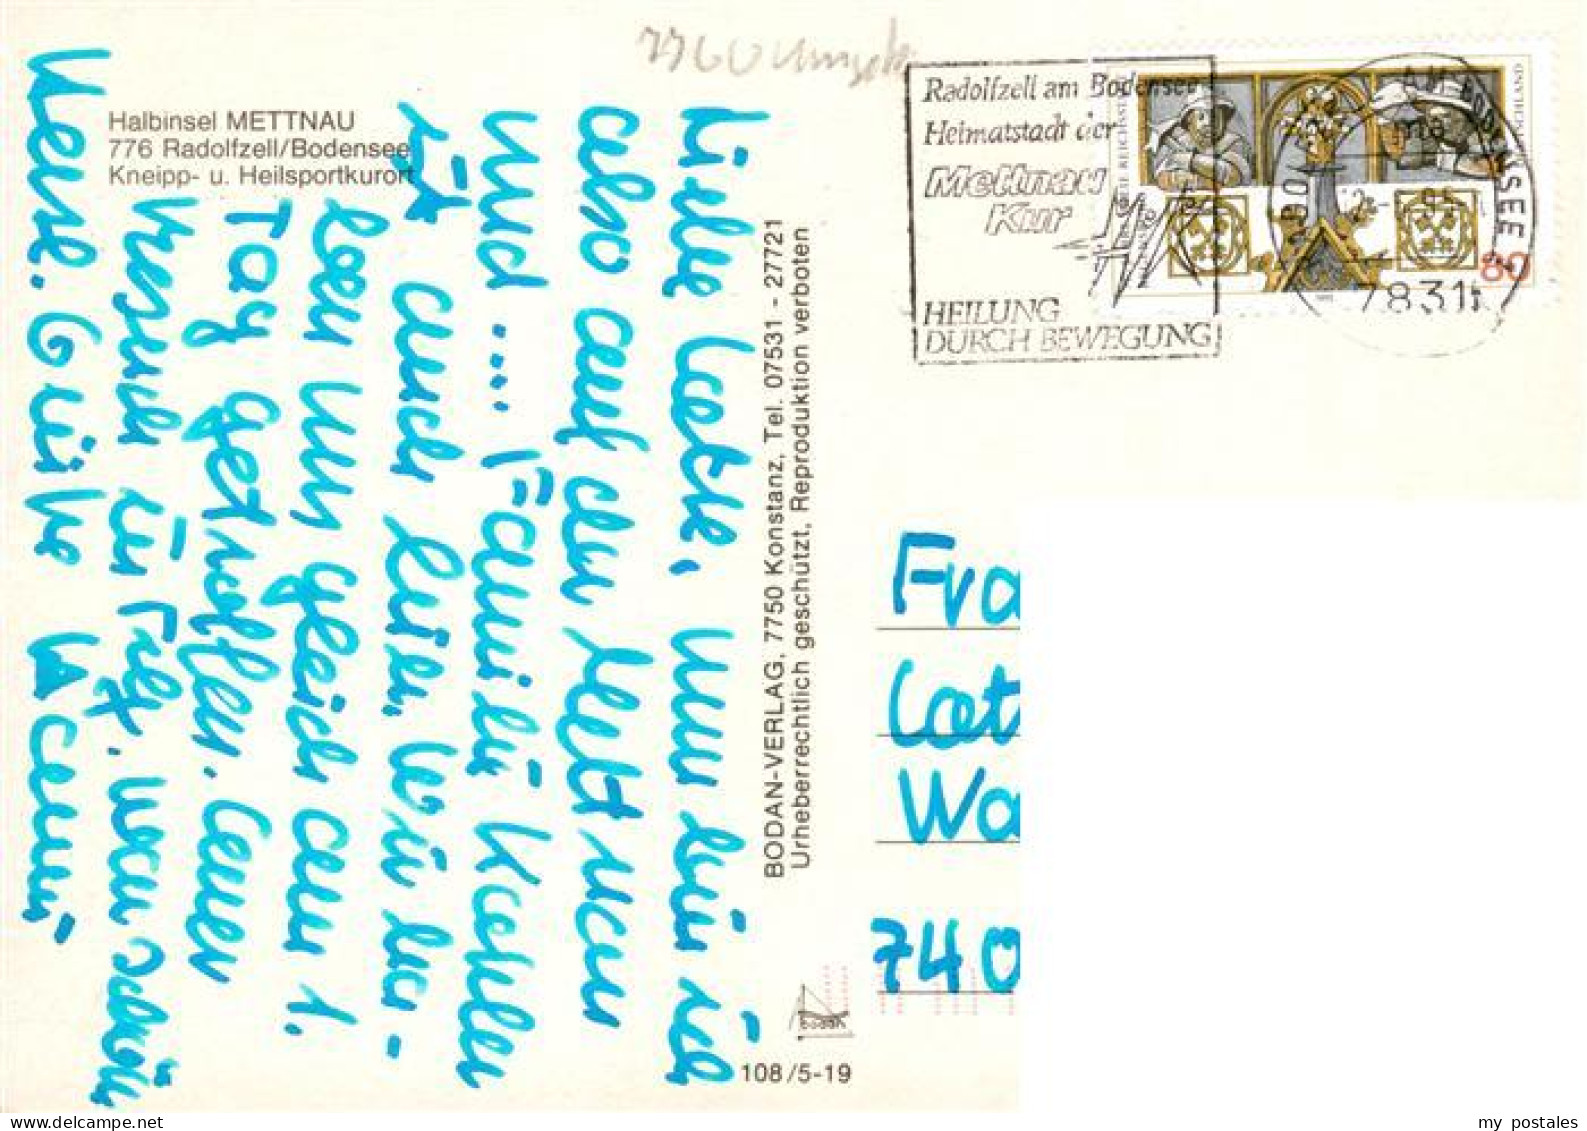 Halbinsel METTNAU
776 Radolfzell/Bodensee
Kneipp- u. Heilsportkurort
Liebe Cetti, nun bin ich
also auf der Mettnau
und .... Familie
ist auch hier. Wir ha-
ben uns gleich am 1.
Tag getroffen.
Herzl. Grüße
BODAN-VERLAG, 7750 Konstanz, Tel. 07531 - 27721
Urheberrechtlich geschützt, Reproduktion verboten
bodan
108/5-19
7760
Radolfzell am Bodensee
Heimatstadt der
Mettnau
Kur
HEILUNG
DURCH BEWEGUNG
AM BODENSEE
78315
DEUTSCHLAND
80
Fra
Cet
Wa
740
my postales